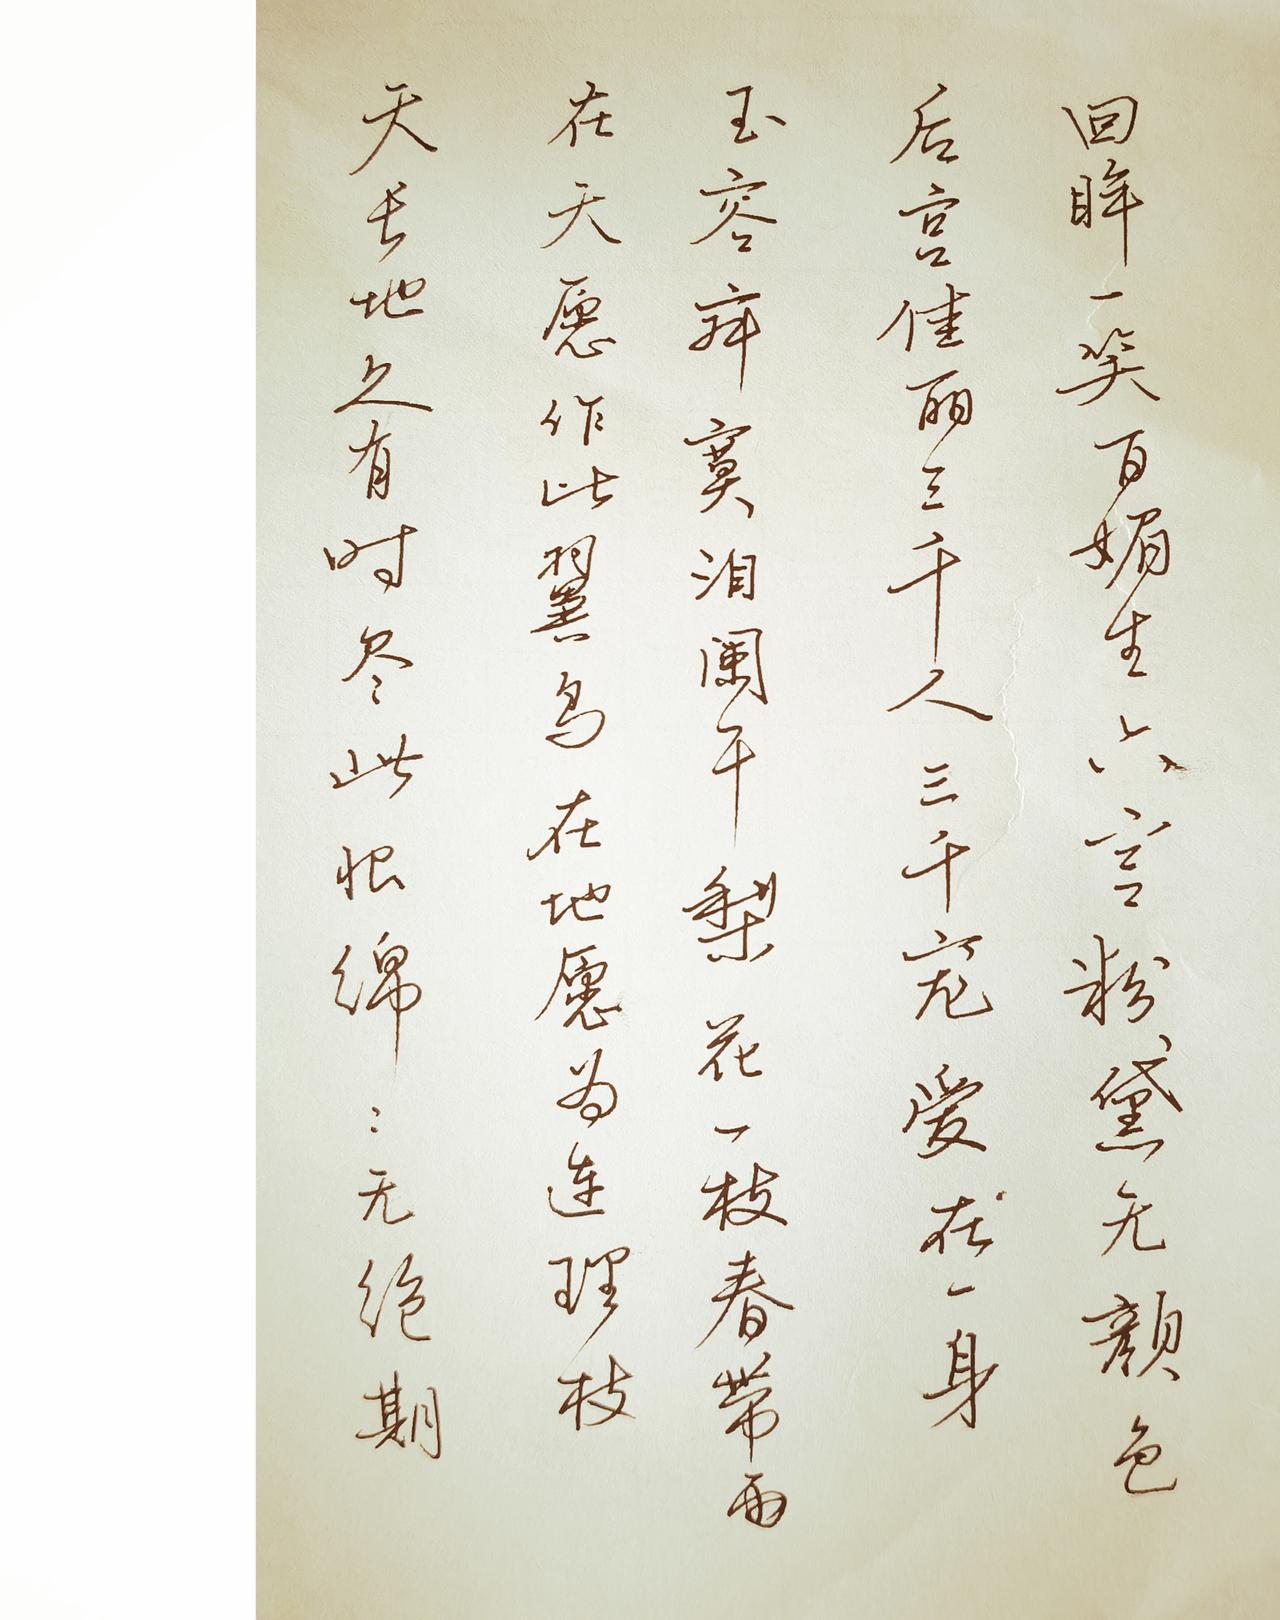 回眸一笑百媚生六宫粉黛无颜色
后宫佳丽三千人三千宠爱在一身
玉容寂寞泪阑干梨花一枝春带雨
在天愿作比翼鸟在地愿为连理枝
天长地久有时尽此恨绵:无绝期